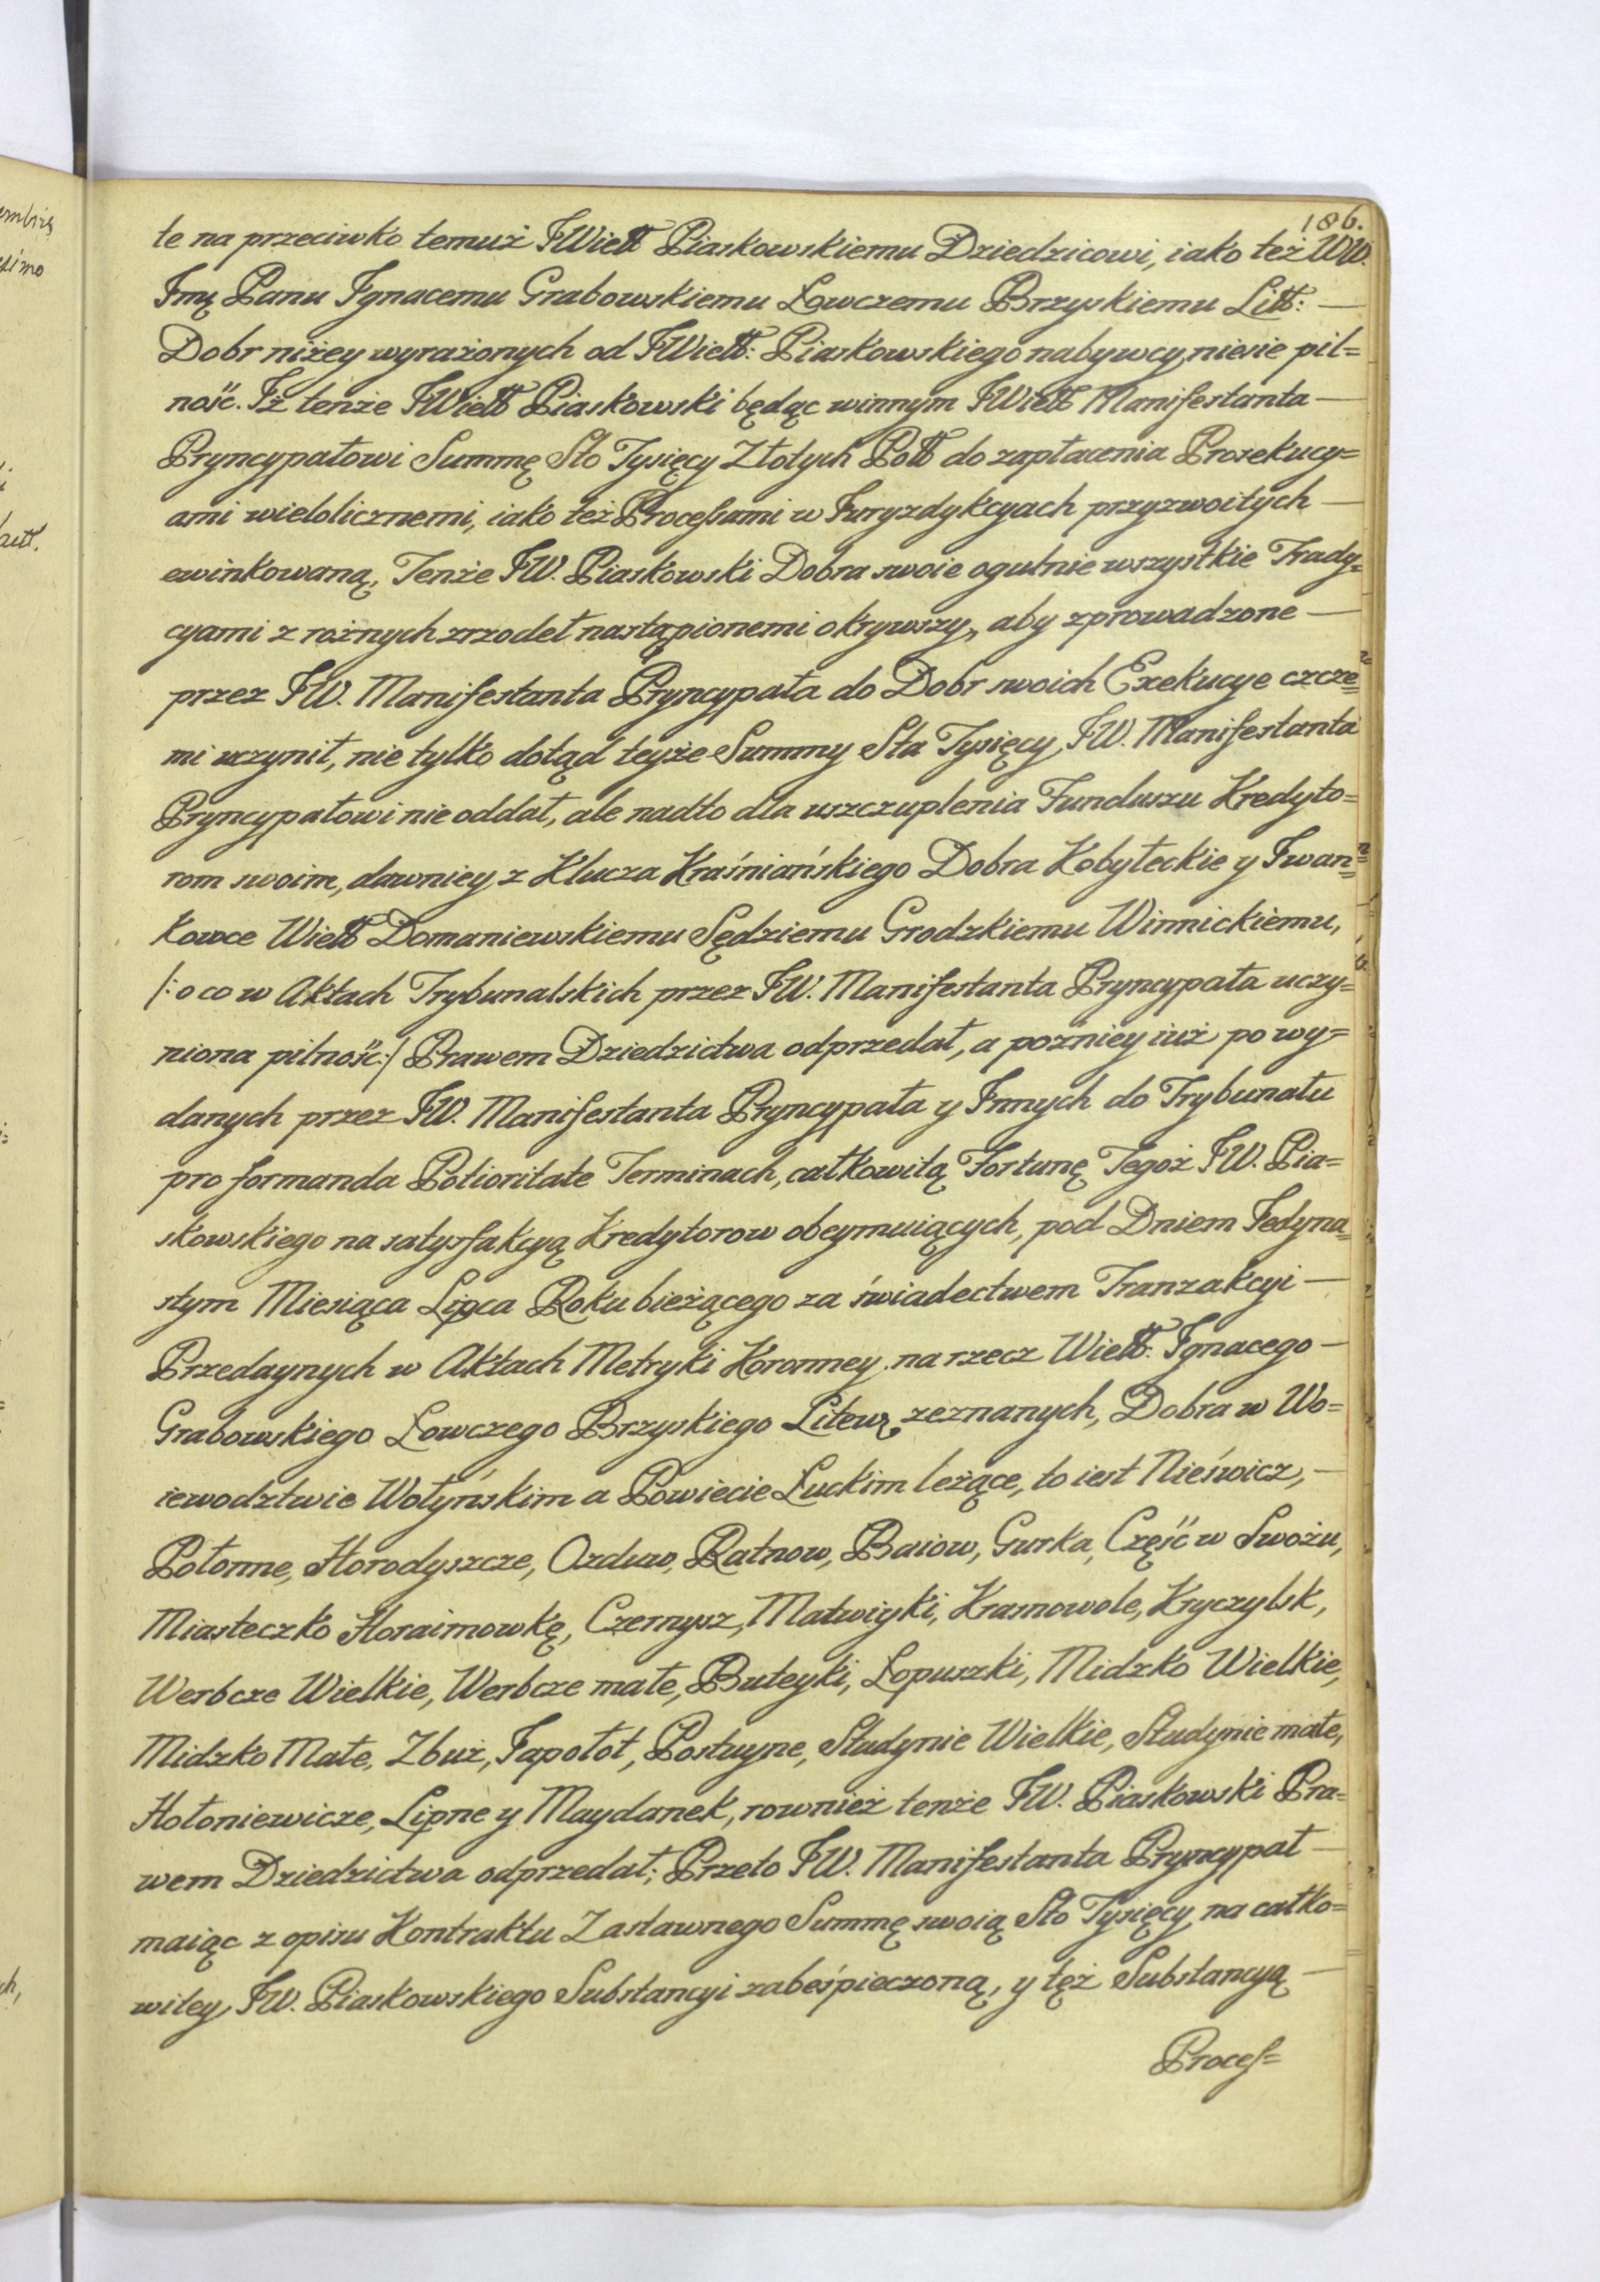 186.
te na przeciwko temuż JWielb Piaskowskiemu Dziedzicowi, iako też WW.
Jmę Panu Jgnacemu Grabowskiemu Łowczemu Brzyskiemu Litt: —
Dobr niżey wyrażonych od JWielb: Piaskowskiego nabywcy, niesie pil=
ność. Jż tenże JWielb Piaskowski będąc winnym JWielb Manifestanta —
Pryncypałowi Summę Sto Tysięcy Złotych Poll do zapłacenia Prosekucy=
ami wielolicznemi, iako też Processami w Juryzdykcyach przyzwoitych —
ewinkowaną, Tenże JW. Piaskowski Dobra swoie ogulnie wszystkie Trady=
cyami z rożnych zrzodeł nastąpionemi okrywszy, aby zprowadzone —
przez JW. Manifestanta Pryncypała do Dobr swoich Exekucye czcze=
mi uczynił, nie tylko dotąd teyże Summy Sta Tysięcy JW. Manifestanta
Pryncypałowi nie oddał, ale nadto dla uszczuplenia Funduszu Kredyto=
rom swoim, dawniey z Klucza Kraśniańskiego Dobra Kobyłeckie y Jwan=
kowce Wielb Domaniewskiemu Sędziemu Grodzkiemu Winnickiemu,
/: o co w Aktach Trybunalskich przez JW. Manifestanta Pryncypała uczy=
niona pilność :/ Prawem Dziedzictwa odprzedał, a pożniey iuż po wy=
danych przez JW. Manifestanta Pryncypała y Jnnych do Trybunału
pro formanda Potioritate Terminach, całkowitą Fortunę Tegoż JW. Pia=
skowskiego na satysfakcyą Kredytorow obeymuiących, pod Dniem Jedyna=
stym Miesiąca Lipca Roku bieżącego za świadectwem Tranzakcyi —
Przedaynych w Aktach Metryki Koronney na rzecz Wielb. Jgnacego —
Grabowskiego Łowczego Brzyskiego Litew. zeznanych, Dobra w Wo=
iewodztwie Wołyńskim a Powiecie Łuckim leżące, to iest Nieświcz, —
Połonne, Horodyszcze, Ozduw, Ratnow, Baiow, Gurka, Część w Swożu,
Miasteczko Horaimowkę, Czernysz, Matwiyki, Kramowole, Kryczylsk,
Werbcze Wielkie, Werbcze małe, Buteyki, Łopuszki, Midzko Wielkie,
Midzko Małe, Zbuż, Japołoł, Postuyne, Studynie Wielkie, Studynie małe,
Hołoniewicze, Lipne y Maydanek, rownież tenże JW. Piaskowski Pra=
wem Dziedzictwa odprzedał; Przeto JW. Manifestanta Pryncypał —
maiąc z opisu Kontraktu Zastawnego Summę swoią Sto Tysięcy na całko=
witey JW. Piaskowskiego Substancyi zabeśpieczoną, y też Substancyą —
Process=